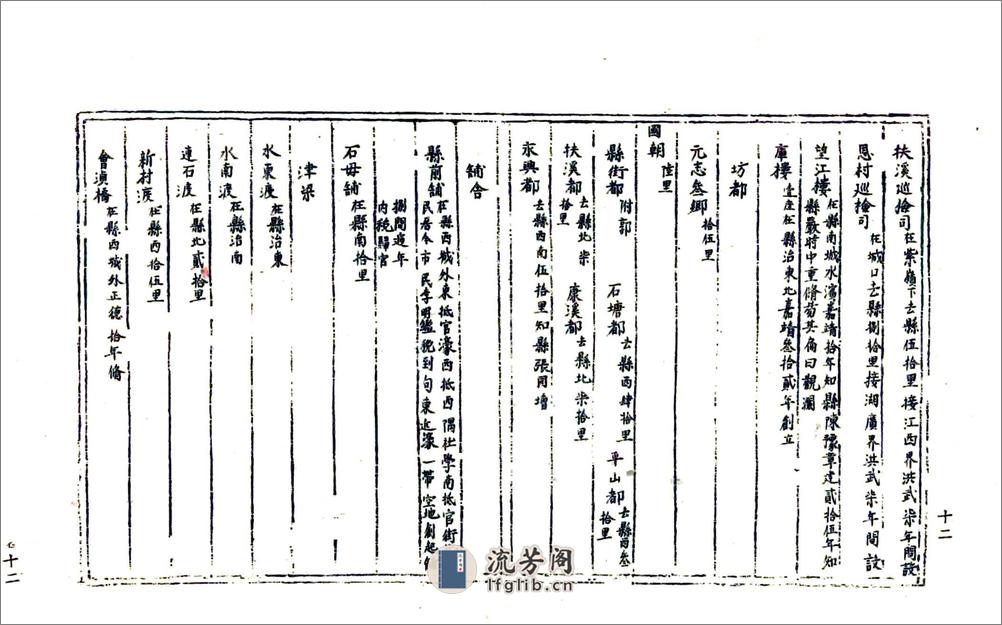 扶溪巡撿司在紫嶺下去縣伍拾里接江西界洪武柒年開設
恩村巡撿司在城口去縣捌拾里接湖廣界洪武柒年開設
望江樓在縣南城水濱嘉靖拾年知縣陳豫章建貳拾伍年知
縣嚴時中重脩萄其扁曰觀瀾
庫樓壹座在縣治東北嘉靖叁拾貳年創立
坊都
元志叁鄉拾伍里
國朝陸里
縣街都附郭 石塘都去縣西肆拾里 平山都去縣西叁拾里
扶溪都去縣北柒拾里 康溪都去縣北柒拾里
永興都去縣西南伍拾里知縣張用增
舖舍
縣前舖在縣西城外東抵官濠西抵西隅社學南抵官街
民居今市民李明鑑稅到句東近濠一帶空地剏起
捌間遞年
內稅歸官
石母舖在縣南拾里
津梁
水東渡在縣治東
水南渡在縣治南
連石渡在縣北貳拾里
新村渡在縣西拾伍里
會湞橋在縣西城外正德拾年脩
十二
十二
流芳阁
lfglib.cn